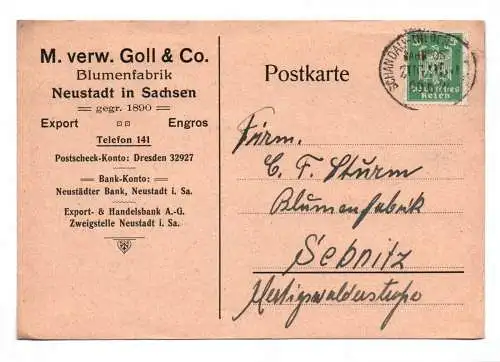 M. verw. Goll & Co.
Blumenfabrik
Neustadt in Sachsen
gegr. 1890
Export Engros
Telefon 141
Postscheck-Konto: Dresden 32927
Bank-Konto:
Neustädter Bank, Neustadt i. Sa.
Export- & Handelsbank A.-G.
Zweigstelle Neustadt i. Sa.
Postkarte
5 5
Deutsches
Reich
Firm.
C. F. Sturm
Blumenfabrik
Sebnitz
Hertigswalderstraße